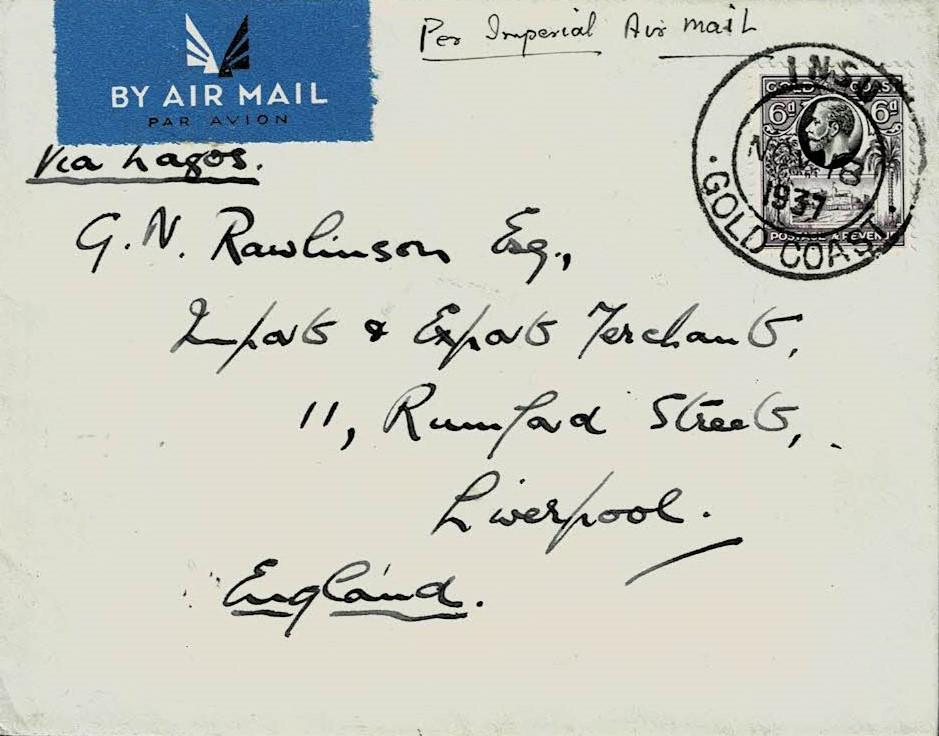 Per Imperial Air Mail
BY AIR MAIL
PAR AVION
Via Lagos.
INSU
GOLD COAST
6d 6d
NOV 18
1937
POSTAGE & REVENUE
GOLD COAST
G. N. Rawlinson Esq.,
Import & Export Merchant,
11, Rumford Street,
Liverpool.
England.